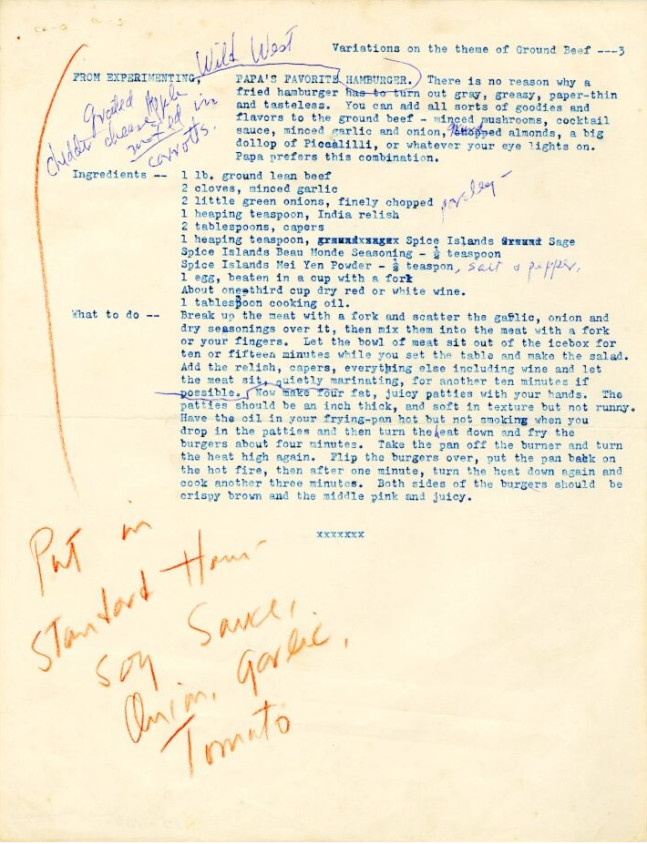 Variations on the theme of Ground Beef ---3
Wild West
FROM EXPERIMENTING, PAPA'S FAVORITE HAMBURGER. There is no reason why a
fried hamburger has to turn out gray, greasy, paper-thin
and tasteless. You can add all sorts of goodies and
flavors to the ground beef - minced mushrooms, cocktail
sauce, minced garlic and onion, chopped almonds, a big
dollop of Piccalilli, or whatever your eye lights on.
Papa prefers this combination.
grated apple
cheddar cheese
mixed in
carrotts.
Ingredients -- 1 lb. ground lean beef
2 cloves, minced garlic
2 little green onions, finely chopped parsley -
1 heaping teaspoon, India relish
2 tablespoons, capers
1 heaping teaspoon, Spice Islands Sage
Spice Islands Beau Monde Seasoning - ½ teaspoon
Spice Islands Mei Yen Powder - ½ teaspon, salt & pepper,
1 egg, beaten in a cup with a fork
About one-third cup dry red or white wine.
1 tablespoon cooking oil.
What to do -- Break up the meat with a fork and scatter the garlic, onion and
dry seasonings over it, then mix them into the meat with a fork
or your fingers. Let the bowl of meat sit out of the icebox for
ten or fifteen minutes while you set the table and make the salad.
Add the relish, capers, everything else including wine and let
the meat sit, quietly marinating, for another ten minutes if
possible. Now make four fat, juicy patties with your hands. The
patties should be an inch thick, and soft in texture but not runny.
Have the oil in your frying-pan hot but not smoking when you
drop in the patties and then turn the heat down and fry the
burgers about four minutes. Take the pan off the burner and turn
the heat high again. Flip the burgers over, put the pan back on
the hot fire, then after one minute, turn the heat down again and
cook another three minutes. Both sides of the burgers should be
crispy brown and the middle pink and juicy.
xxxxxxx
Put in
Standard Ham-
Soy Sauce,
Onion, Garlic,
Tomato